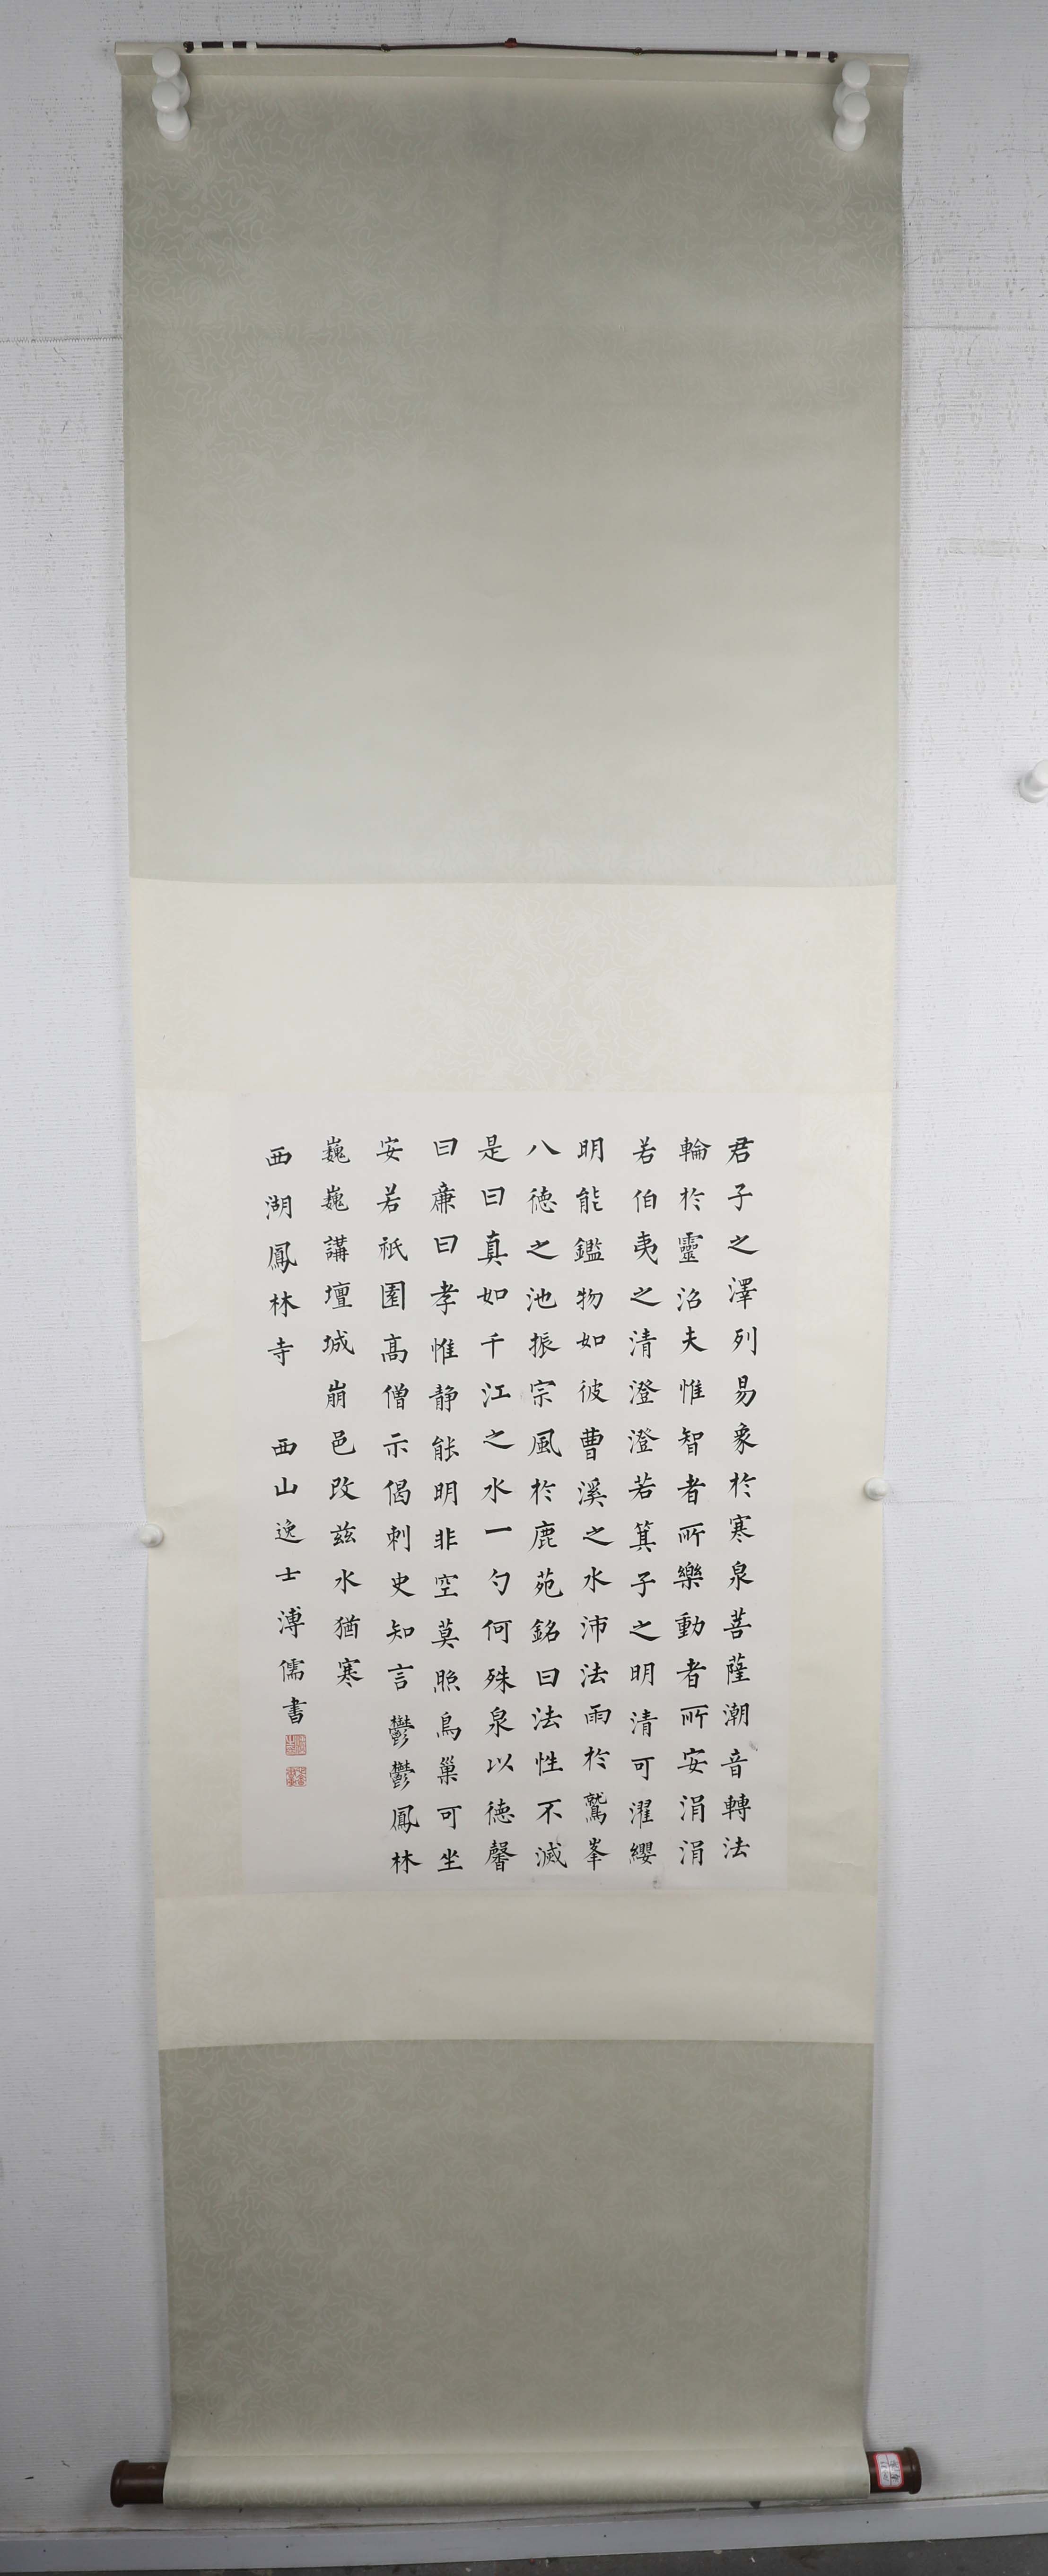 君子之澤列易象於寒泉菩薩潮音轉法
輪於靈沼夫惟智者所樂動者所安涓涓
若伯夷之清澄澄若箕子之明清可濯纓
明能鑑物如彼曹溪之水沛法雨於鷲峯
八德之池振宗風於鹿苑銘曰法性不滅
是曰真如千江之水一勺何殊泉以德馨
曰廉曰孝惟静能明非空莫照鳥巢可坐
安若祇園高僧示偈刺史知言鬱鬱鳳林
巍巍講壇城崩邑改茲水猶寒
西湖鳳林寺 西山逸士溥儒書